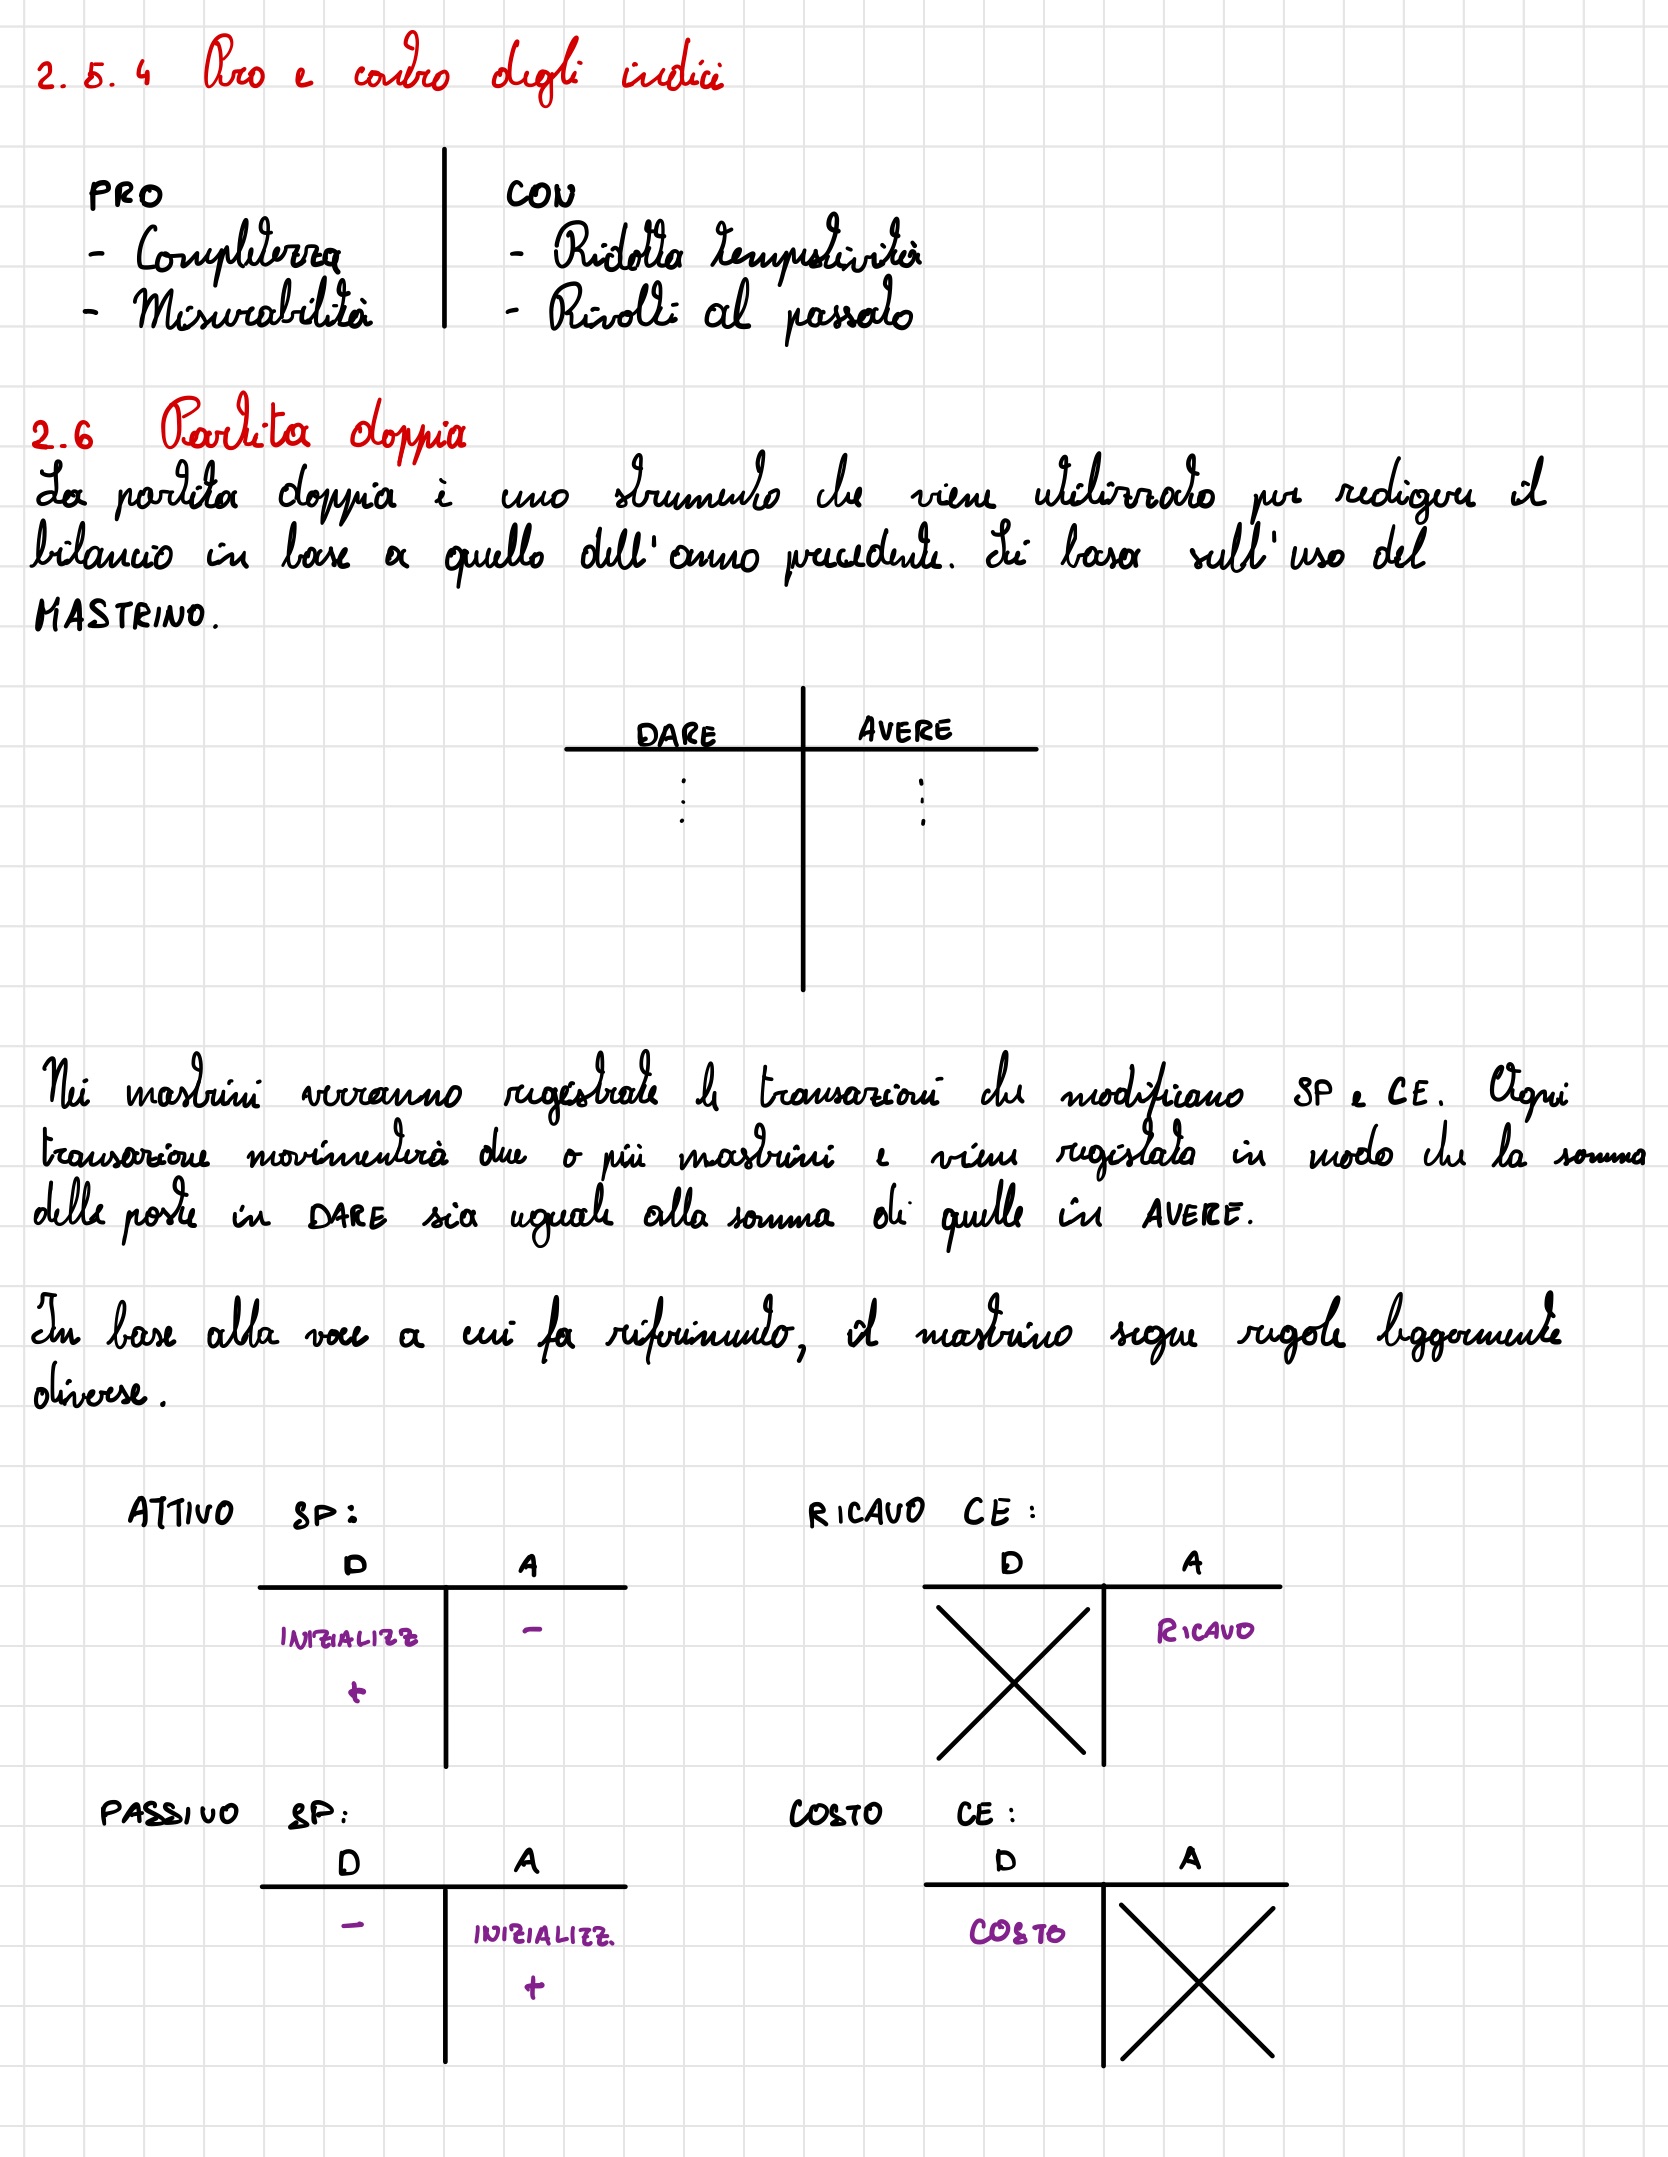 2.5.4 Pro e contro degli indici
PRO
CON
- Completezza
- Ridotta tempstività
- Misurabilità
- Rivolti al passato
2.6 Partita doppia
La partita doppia è uno strumento che viene utilizzato per redigere il
bilancio in base a quello dell'anno precedente. Si basa sull'uso del
MASTRINO.
DARE
AVERE
Nei mastrini verranno registrate le transazioni che modificano SP e CE. Ogni
transazione movimenterà due o più mastrini e viene registata in modo che la somma
delle poste in DARE sia uguale alla somma di quelle in AVERE.
In base alla voce a cui fa riferimento, il mastrino segue regole leggermente
diverse.
ATTIVO SP:
RICAVO CE:
D A
D A
INIZIALIZZ -
RICAVO
+
PASSIVO SP:
COSTO CE:
D A
D A
- INIZIALIZZ.
COSTO
+